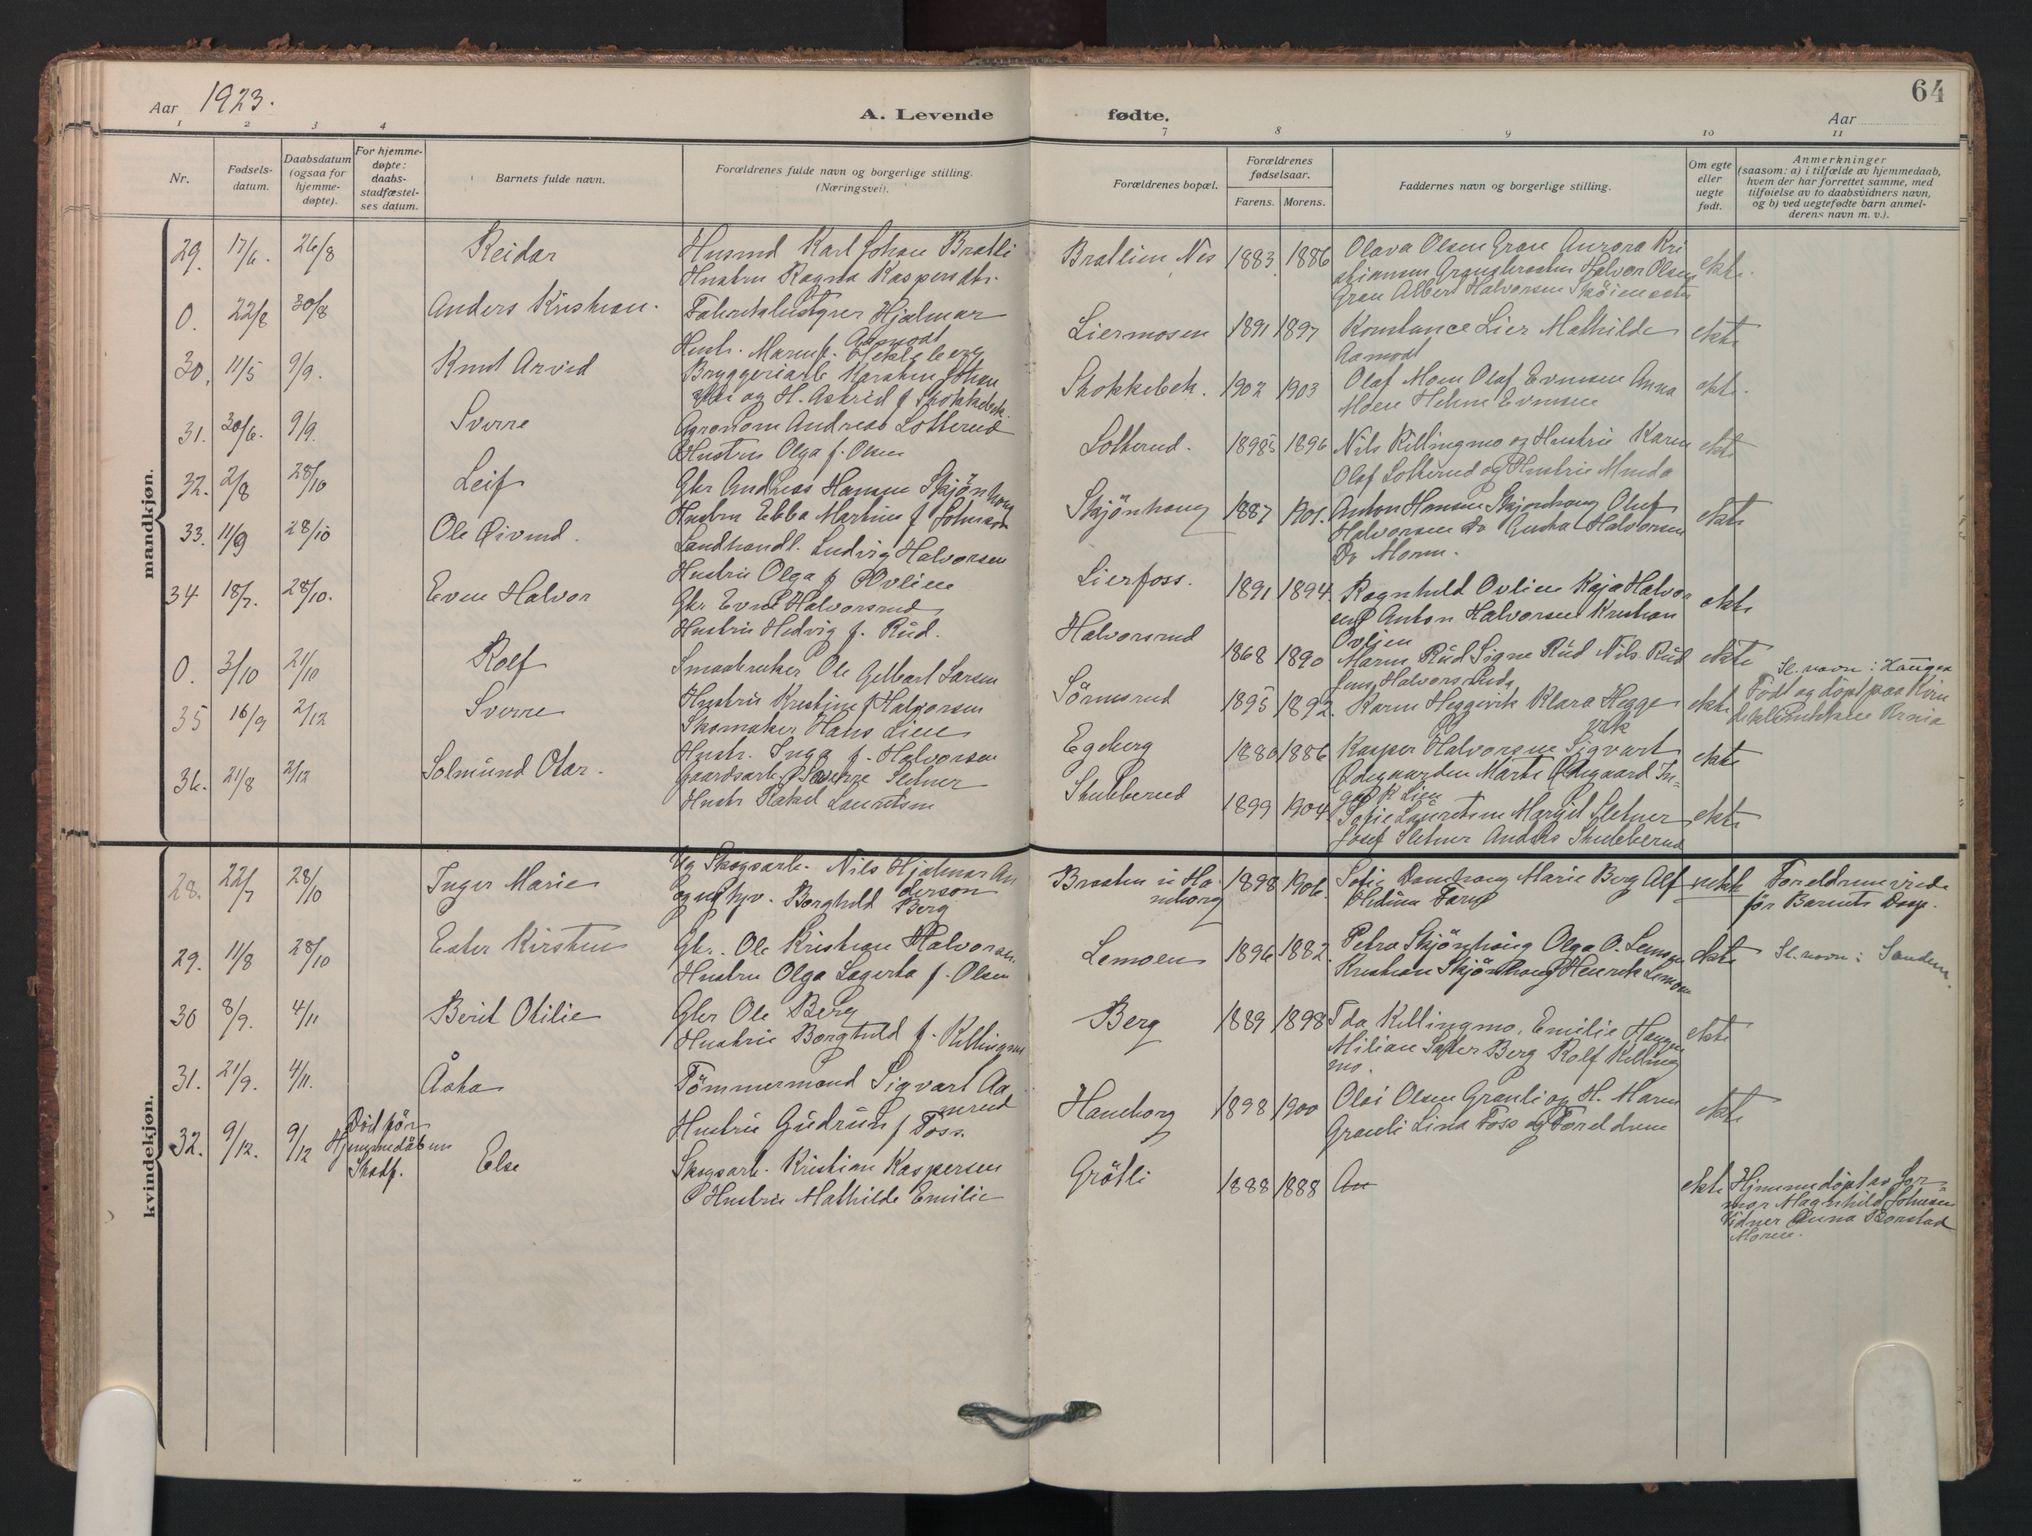 Aar 1923.
A. Levende fødte.
64
Aar
1 2 3 4 7 8 9 10 11
Nr.
Fødsels-
datum.
Daabsdatum
(ogsaa for
hjemme-
døpte).
For hjemme-
døpte:
daabs-
stadfæstel-
ses datum.
Barnets fulde navn.
Forældrenes fulde navn og borgerlige stilling.
(Næringsvei).
Forældrenes bopæl.
Forældrenes
fødselsaar.
Farens. Morens.
Faddernes navn og borgerlige stilling.
Om egte
eller
uegte
født.
Anmerkninger
(saasom: a) i tilfælde av hjemmedaab,
hvem der har forrettet samme, med
tilføielse av to daabsvidners navn,
og b) ved uegtefødte barn anmel-
derens navn m. v.).
mandkjøn.
29. 17/6. 26/8 Reidar
Husmd Karl Johan Bratli
Hustru Ragna Kaspersdtr.
Bratlien Nes 1883 1886
Olava Olsen Gran Aurora Kri
stiansen Granabraaten Halvor Olsen
Gran Albert Halvorsen Skøiensæter
ekte.
0. 22/8 30/8 Anders Kristian.
Fabrikbestyrer Hjalmar
Aamodt
Hustr. Maren f. Hekleberg
Liermosen 1891 1897
Konstance Lier Mathilde
Aamodt
ekte
30. 11/5 9/9. Knut Arvid
Bryggeriarb Karsten Johan
og H. Astrid f Stokkebek.
Stokkebek. 1902 1903
Olaf Moen Olaf Evensen Anna
Moen Helene Evensen
ekte.
31. 30/6. 9/9. Sverre
Agronom Andreas Lotterud
Hustru Olga f. Olsen
Lotterud. 1895 1896
Nils Killingmo og Hustru Karen
Olaf Lotterud og Hustrie Minda
ekte
32. 2/8 28/10 Leif
Gbr Andreas Hansen Skjønhaug
Hustru Ebba Martine f Johnsen
Skjönhaug 1887 1901.
Anton Hansen Skjønhaug Oluf
Halvorsen Do Halvorsen
Do Moren.
ekte
33. 11/9 28/10 Ole Øivind.
Landhandl. Ludvig Halvorsen
Hustru Olga f Ovlien
Lierfoss. 1891 1894
Ragnhild Ovlien Kaja Halvor
sen Anton Halvorsen Kristian
Ovlien
ekte
34 18/7. 28/10. Even Halvor
Gbr Even Halvorsrud
Hustru Hedvig f. Rud.
Halvorsrud 1868 1890
Maren Rud Signe Rud Nils Rud
Jens Halvorsrud
ekte
0. 3/10 21/10 Rolf
Smaabruker Ole Gelbart Larsen
Hustru Kristine f Halvorsen
Sörmsrud 1895 1892.
Karen Heggvik Klara Hegge
vik
ekte
Sl. navn: Haugen
Født og döpt paa Kvin
deklinikken
35 16/9 2/12 Sverre
Skomaker Hans Lien
Hustr. Inga f. Halvorsen
Egeberg 1880 1886
Kasper Halvorsen Sigvart
Ødegaarden Marte Ødegaard In-
K Lien
ekte
36. 21/8 2/12 Solmund Otar.
Gaardsarb. Sverre Sletner
Hustr Rakel Lauritsen
Stubberud 1899 1904
Sofie Lauritsen Margit Sletner
Josef Sletner Anders Stubberud
ekte
kvindekjøn.
28. 22/7 28/10 Inger Marie
Ug Skogsarb. Nils Hjalmar An
derson
og ug tjp. Borghild Berg
Braaten u Ha-
neborg 1898 1906.
Sofie Marie Berg Alf
uekte
Foreldrene viede
før Barnets Daap.
29. 11/8 28/10 Ester Kirsten
Gbr. Ole Kristian Halvorsen
Hustru Olga Lagerta f. Olsen
Lemoen 1896 1882.
Petra Skjönhaug Olga O. Lemoen
Kristian Skjönhaug Henrik Lemoen
ekte
Sl. navn: Sandem.
30 8/9. 4/11 Berit Otilie
Gbr Ole Berg
Hustrie Borghild f. Killingmo
Berg 1889 1898
Ida Killingmo, Emilie Haugen
Milian Sæter Berg Rolf Killing
mo.
ekte
31. 21/9. 4/11. Åsta
Tömmermand Sigvart Aa
merud
Hustru Gudrun f Foss.
Haneborg 1898 1900
Olai Olsen Granli og H. Maren
Granli Lina Foss og Foreldrene
ekte
32. 9/12. 9/12
Död för
Hjemmedåben
Stadf.
Else
Skogsarb. Kristian Kaspersen
Hustru Mathilde Emilie
Gråtli 1888 1888
ekte
Hjemmedöpt av Jor-
mor Magnhild Johnsen
Vidner Anna Borstad
Moren.